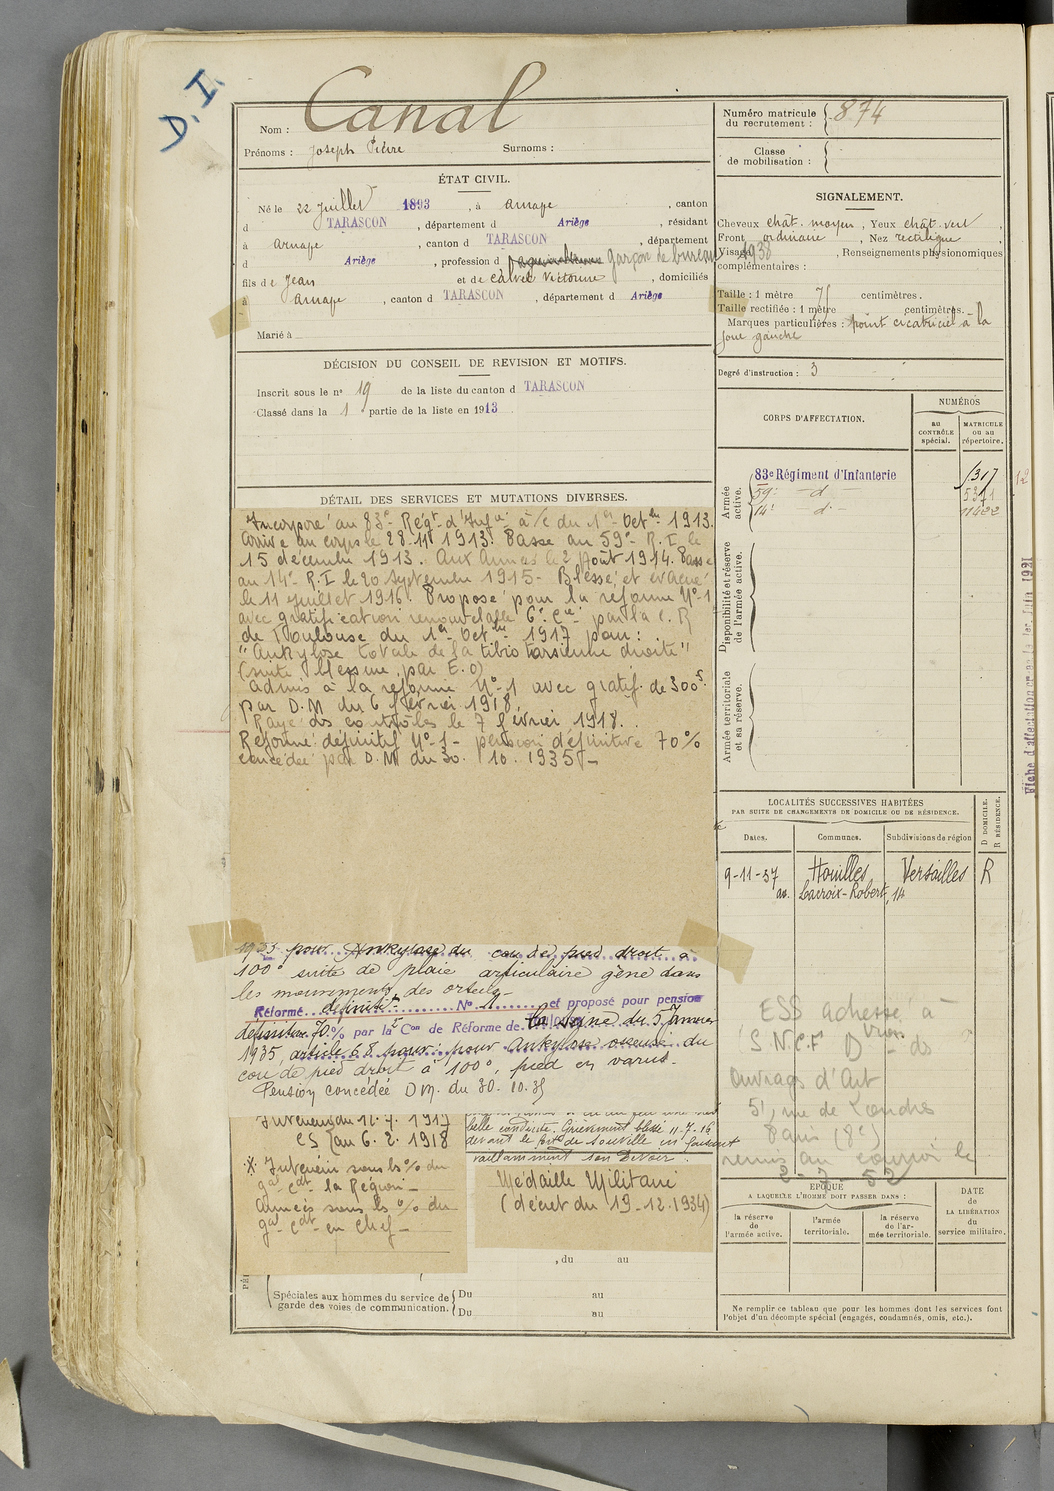 D. I.
Nom : Canal
Prénoms : Joseph Pierre Surnoms :
ÉTAT CIVIL.
Né le 22 Juillet 1893, à Arnave, canton
d TARASCON, département d Ariège, résidant
à Arnave, canton d TARASCON, département
d Ariège, profession d garçon de bureau
fils de Jean et de Calvet Victorine, domiciliés
à Arnave, canton d TARASCON, département d Ariège
Marié à
DÉCISION DU CONSEIL DE REVISION ET MOTIFS.
Inscrit sous le n° 19 de la liste du canton d TARASCON
Classé dans la 1 partie de la liste en 1913
DÉTAIL DES SERVICES ET MUTATIONS DIVERSES.
Incorporé au 83e Régt d'Infie à/c du 1er Octbre 1913.
Arrivé au corps le 28-11 1913. Passé au 59e R.I. le
15 décembre 1913. Aux Armées le 2 Août 1914. Passé
au 14e R.I le 20 Septembre 1915- Blessé et évacué
le 11 Juillet 1916. Proposé pour la réforme N°1
avec gratification renouvelable 6e Cie par la C.R
de Toulouse du 1er Octbre 1917 pour :
"Ankylose totale de la tibio tarsienne droite"
(suite blessure par E.O)
Admis à la réforme N°1 avec gratif. de 300f.
par D.M du 6 février 1918.
Rayé des contrôles le 7 février 1918.
Réformé définitif N°1- pension définitive 70%
concédée par D.M du 30. 10. 1935-
1935 pour Ankylose du cou de pied droit à
100° suite de plaie articulaire gêne dans
les mouvements des orteils-
Réformé définitif N° 1 et proposé pour pension
définitive 70% par la Con de Réforme de du 5 Janvier
1935, article 68 pour : pour ankylose osseuse du
cou de pied droit à 100°, pied en varus.
Pension concédée DM. du 30. 10. 35
Intérieur du 11. 7. 1917
CS (au 6. 2. 1918
* Intérieur sous les % du
gal Cdt la Région-
Armées sous les % du
gal Cdt en Chef-
belle conduite. Grièvement blessé 11.7.16
devant le fort de Souville en faisant
vaillamment son devoir.
Médaille Militaire
(décret du 19-12.1934)
, du au
Spéciales aux hommes du service de garde des voies de communication.
Du au
Du au
Numéro matricule du recrutement : 874
Classe de mobilisation :
SIGNALEMENT.
Cheveux chât. moyen, Yeux chât. vert,
Front ordinaire, Nez rectiligne,
Visage 1938, Renseignements physionomiques
complémentaires :
Taille : 1 mètre 71 centimètres.
Taille rectifiée : 1 mètre centimètres.
Marques particulières : point cicatriciel à la
joue gauche
Degré d'instruction : 3
CORPS D'AFFECTATION.
NUMÉROS
au CONTRÔLE spécial.
MATRICULE ou au répertoire.
Armée active.
83e Régiment d'Infanterie 1317
59e -d- 5371
14e -d- 11422
12
Disponibilité et réserve de l'armée active.
Armée territoriale et sa réserve.
LOCALITÉS SUCCESSIVES HABITÉES
PAR SUITE DE CHANGEMENTS DE DOMICILE OU DE RÉSIDENCE.
D DOMICILE.
R RÉSIDENCE.
Dates. Communes. Subdivisions de région
9-11-37 Houilles Versailles R
av. Lacroix-Robert, 14
ESS adressé à
S.N.C.F Don des
Ouvrages d'Art
51, rue de Londres
Paris (8e)
remis au courrier le
2-7-52
ÉPOQUE
A LAQUELLE L'HOMME DOIT PASSER DANS :
la réserve de l'armée active.
l'armée territoriale.
la réserve de l'armée territoriale.
DATE de LA LIBÉRATION du service militaire.
Ne remplir ce tableau que pour les hommes dont les services font
l'objet d'un décompte spécial (engagés, condamnés, omis, etc.).